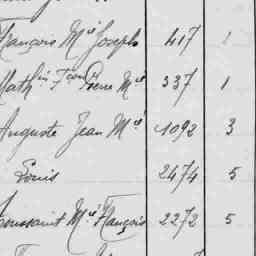 François Mie Joseph 417 1
Math in Fçois Pierre Mie 337 1
Auguste Jean Mie 1092 3
Louis 2474 5
Toussaint Mie François 2272 5